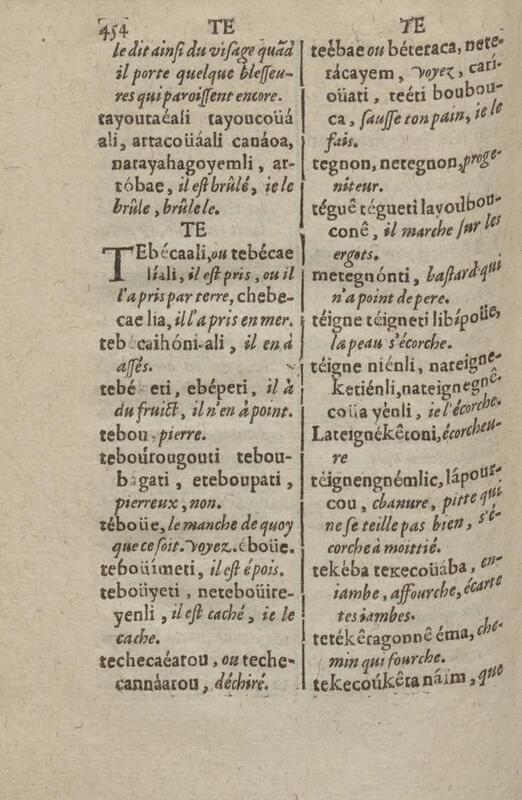 454 TE TE
le dit ainſi du viſage quãd
il porte quelque bleſſeu-
res qui paroiſſent encore.
tayoutaéali tayoucoüá
ali, artacoüáali canáoa,
narayahagoyemli, ar-
tóbae, il eſt brûlé, ie le
brûle, brûle le.
TE
TEbécaali, ou tebécae
liali, il eſt pris, ou il
l'a pris par terre, chebe-
cae lia, il l'a pris en mer.
tebécaihóni-ali, il en à
aſſés.
tebé eti, ebépeti, il à
du fruict, il n'en à point.
tebou, pierre.
teboúrougouti tebou-
bágati, eteboupati,
pierreux, non.
téboüe, le manche de quoy
que ce ſoit. Voyez. éboüe.
teboüímeti, il eſt épois.
teboüyeti, neteboüire-
yenli, il eſt caché, ie le
cache.
techecaéatou, ou teche-
cannáatou, déchiré.
teébae ou béteraca, nete-
rácayem, Voyez, cari-
oüati, teéti boubou-
ca, fauſſe ton pain, ie le
fais.
tegnon, netegnon, proge-
niteur.
téguê tégueti layoubou-
conê, il marche ſur les
ergots.
metegnónti, baſtard qui
n'a point de pere.
téigne téigneti libípoüe,
la peau s'écorche.
téigne niénli, nateigne-
ketiénli, nateignegnê-
coüa yénli, ie l'écorche.
Lateignékêtoni, écorcheu-
re
téignengnémlic, lápour-
cou, chanure, pitte qui
ne ſe teille pas bien, s'é-
corche à moittié.
tekéba tekecoüába, en-
iambe, affourche, écarte
tes iambes.
tetékêragonnê éma, che-
min qui fourche.
tekecoúkêta náim, que